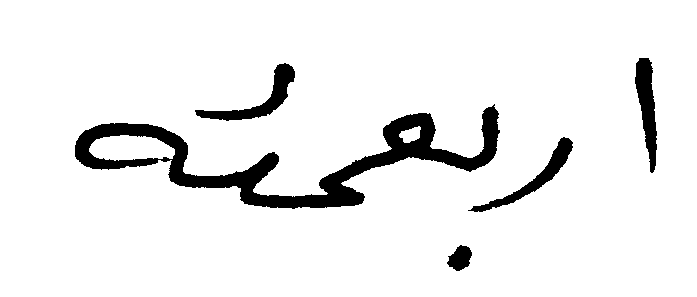 اربعمئة